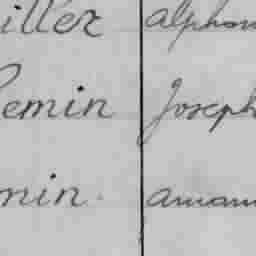 iller alphon
emin Joseph
min. aman